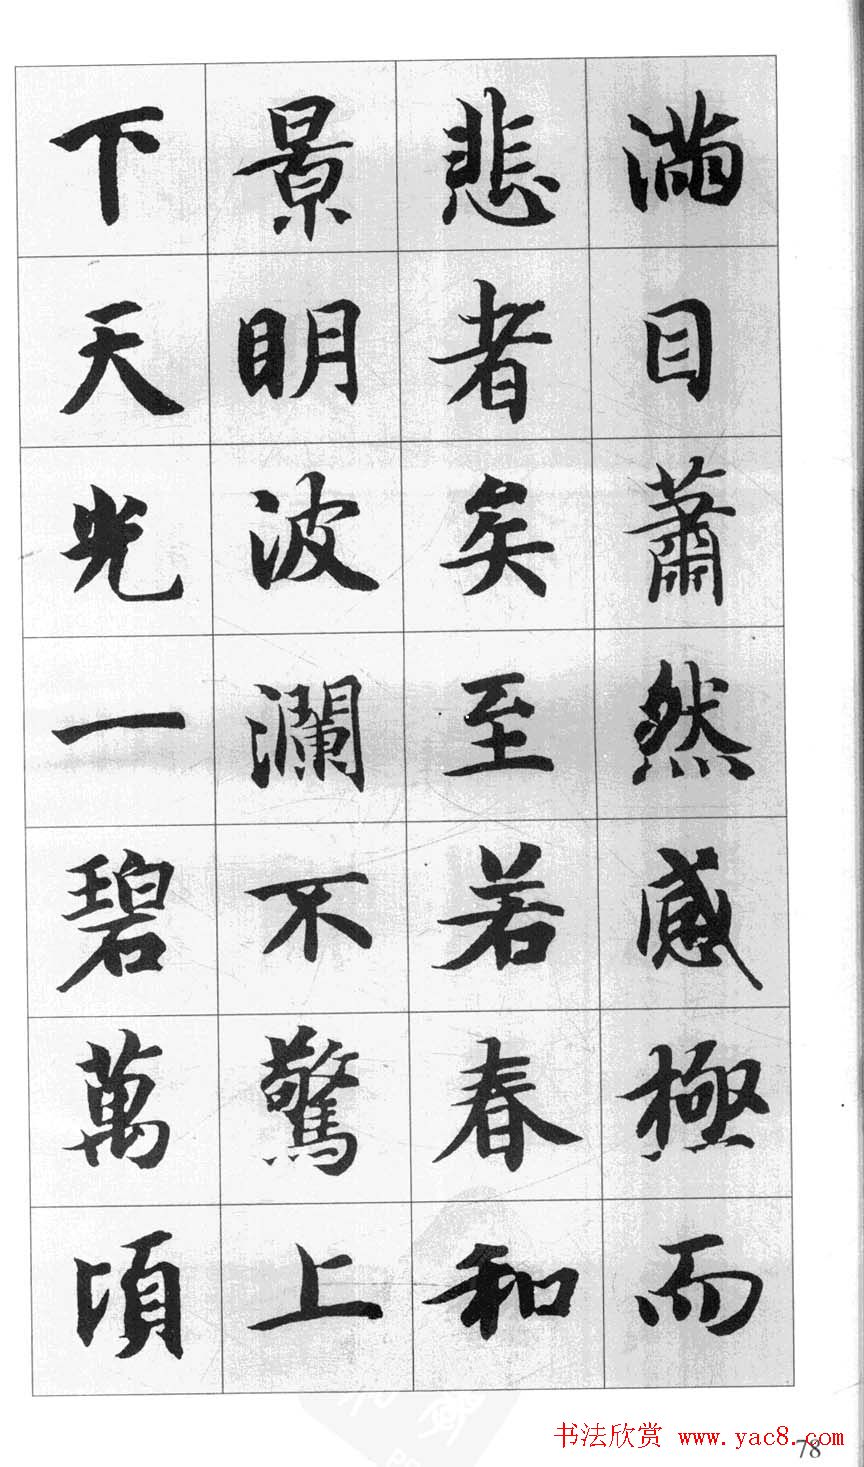 滿目蕭然感極而
悲者矣至若春和
景明波瀾不驚上
下天光一碧萬頃
书法欣赏 www.yac8.com
78